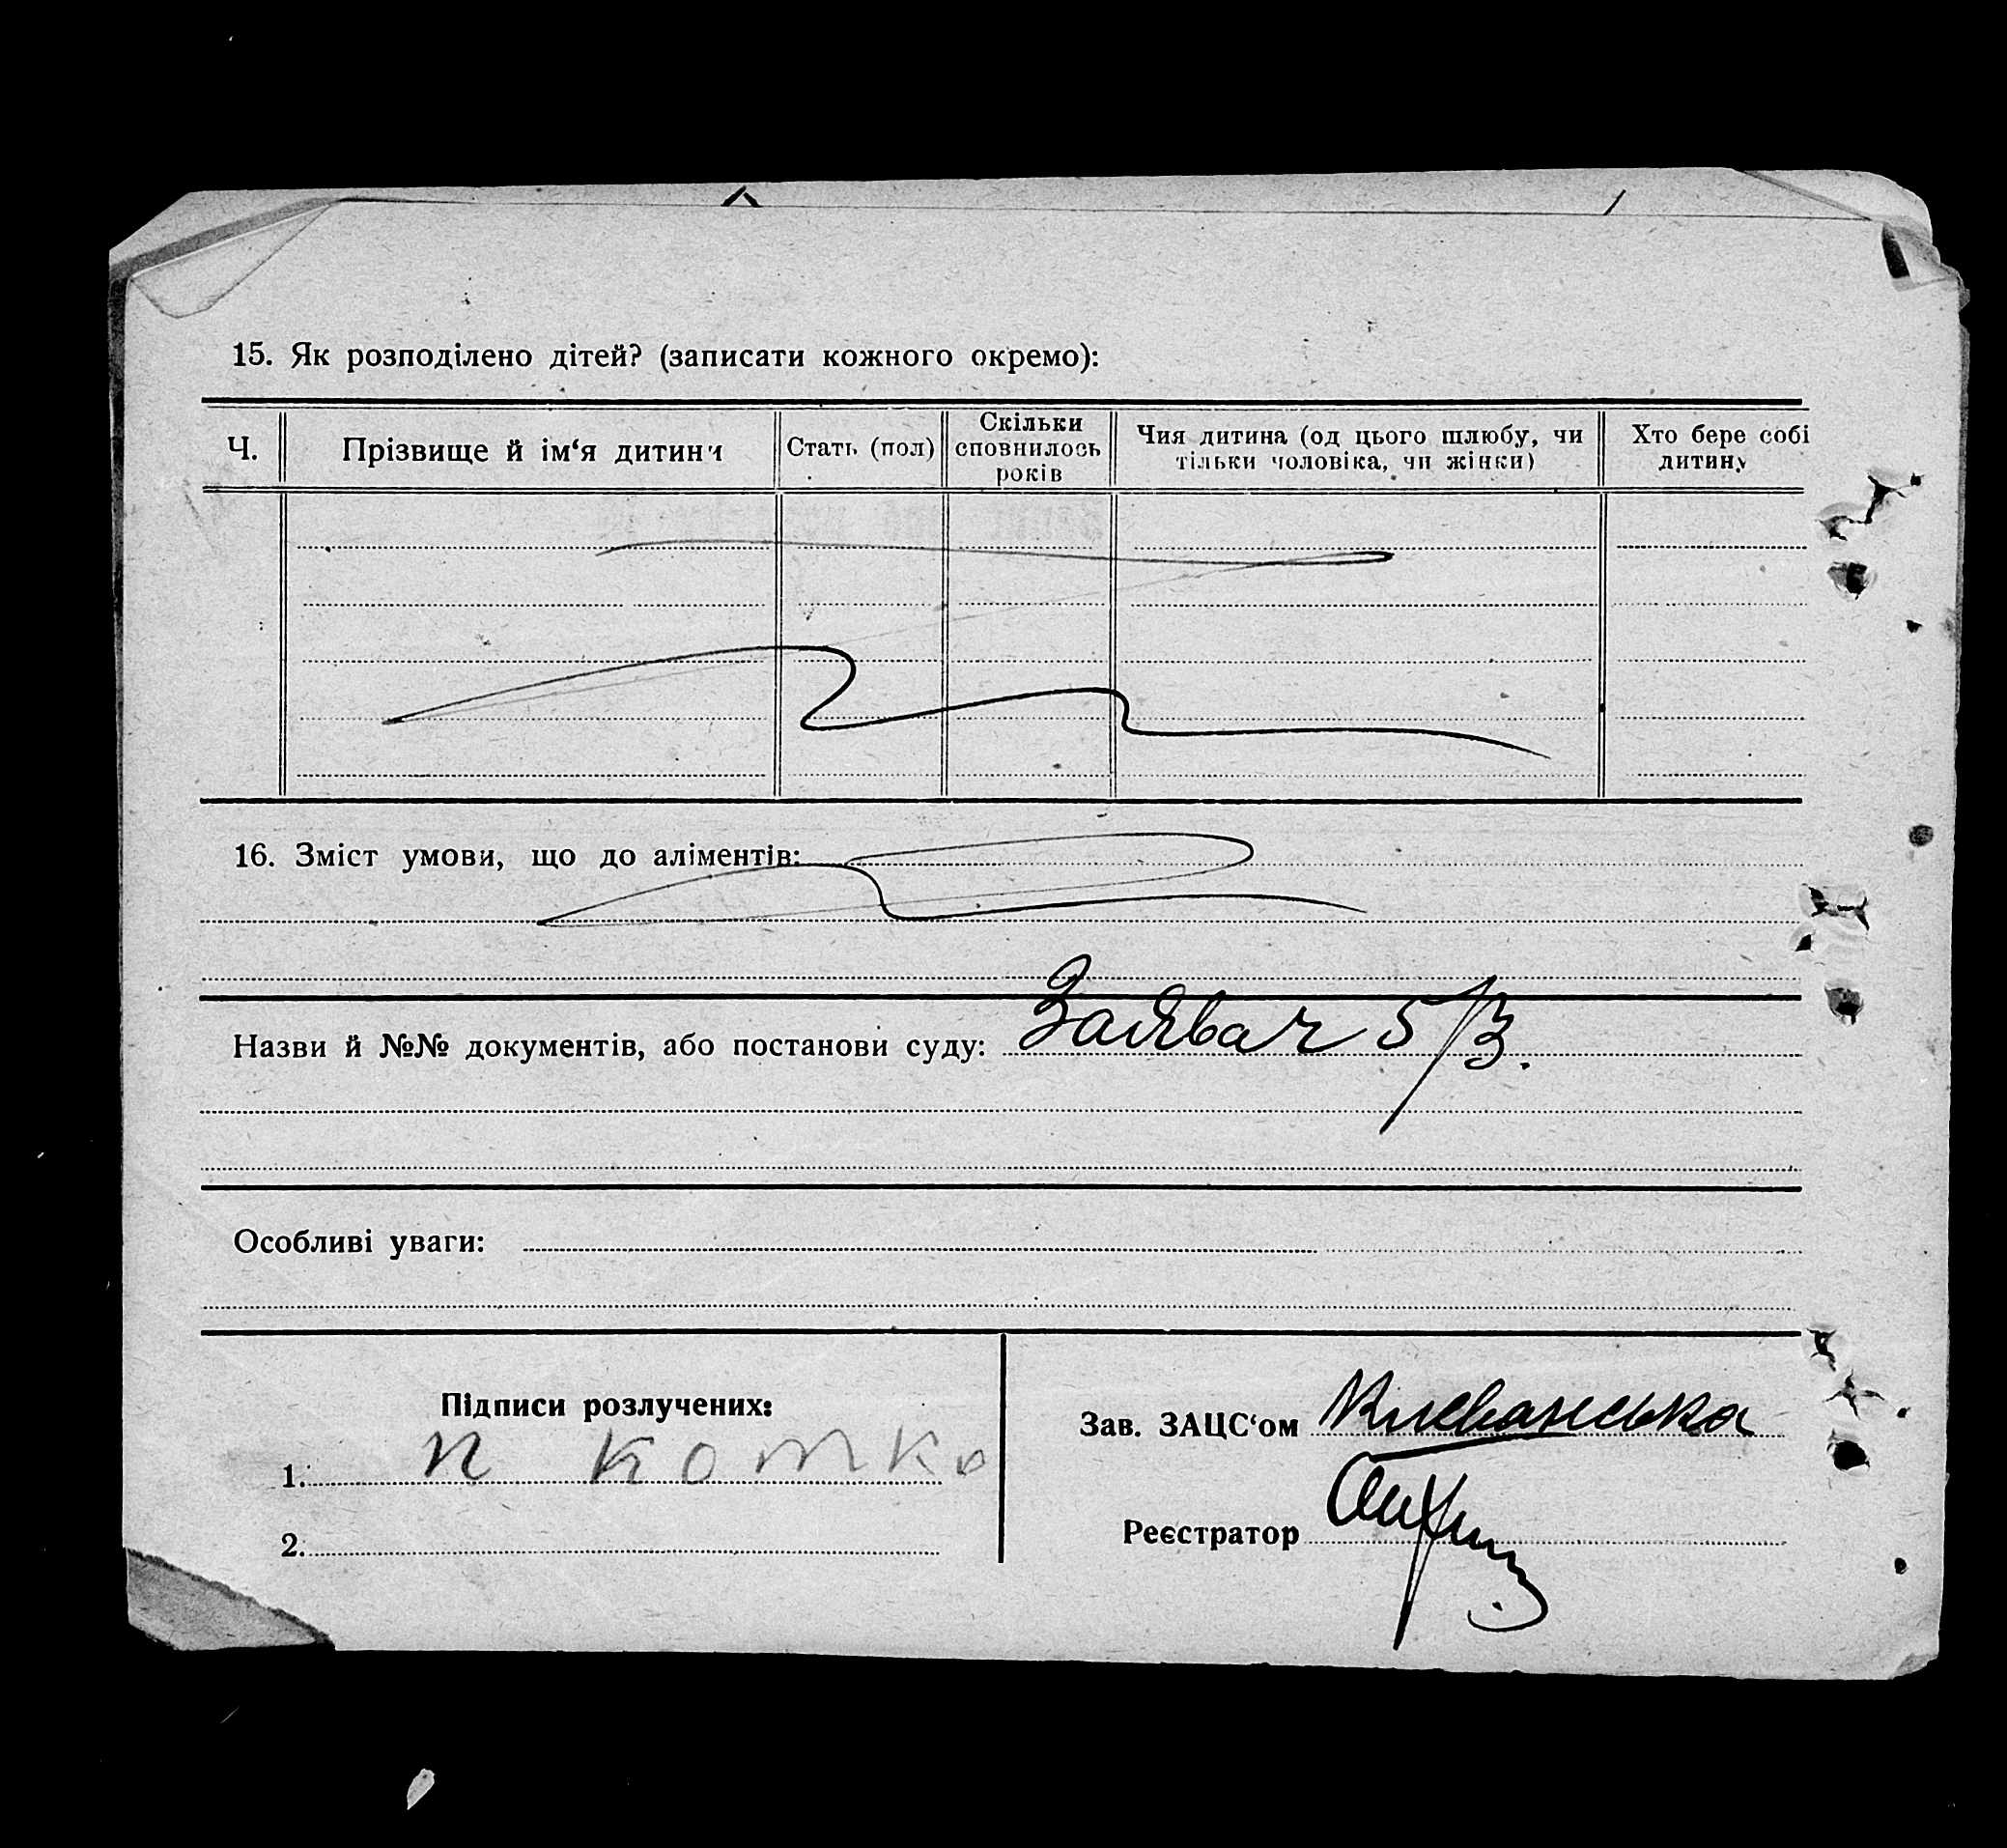 15. Як розподілено дітей? (записати кожного окремо):
Ч.
Прізвище й ім‘я дитини
Стать (пол)
Скільки
сповнилось
років
Чия дитина (од цього шлюбу, чи
тільки чоловіка, чи жінки)
Хто бере собі
дитину
16. Зміст умови, що до аліментів:
Назви й №№ документів, або постанови суду: 5/3.
Особливі уваги:
Підписи розлучених:
1. п котко
2.
Зав. ЗАЦС‘ом
Реєстратор